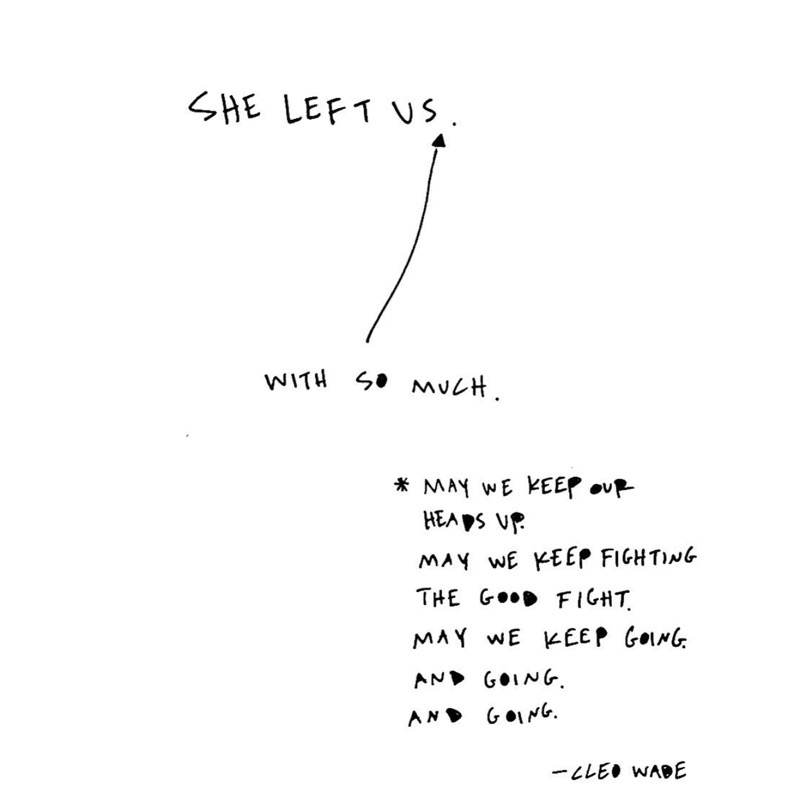 SHE LEFT US.
WITH SO MUCH.
* MAY WE KEEP OUR
HEADS UP.
MAY WE KEEP FIGHTING
THE GOOD FIGHT.
MAY WE KEEP GOING.
AND GOING.
AND GOING.
—CLEO WADE